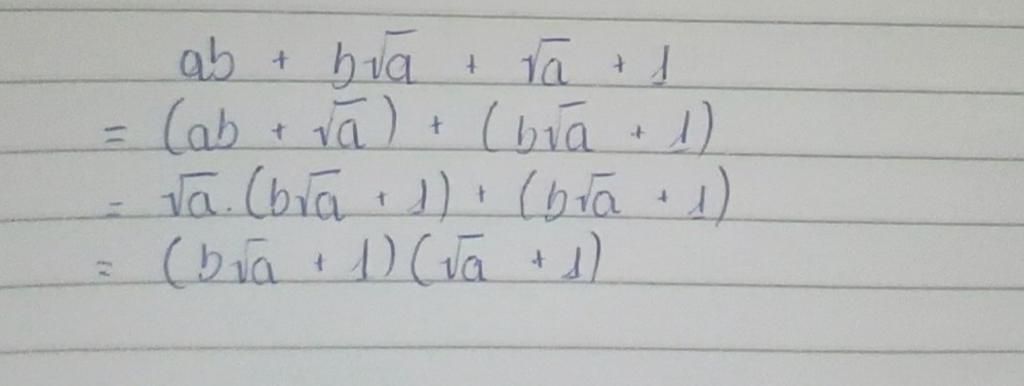 ab + b√a + √a + 1
= (ab + √a) + (b√a + 1)
= √a.(b√a + 1) + (b√a + 1)
= (b√a + 1)(√a + 1)